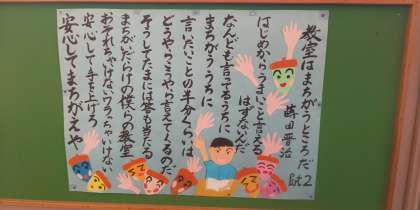 教室はまちがうところだ
蒔田晋治
Part 2
はじめから うまいこと言える
はずないんだ
なんども言ってるうちに
まちがううちに
言いたいことの半分くらいは
どうやらこうやら言えてくるのだ
そうしてたまには答も当たる
まちがいだらけの僕らの教室
おそれちゃいけない ワラッちゃいけない
安心して手を上げろ
安心してまちがえや